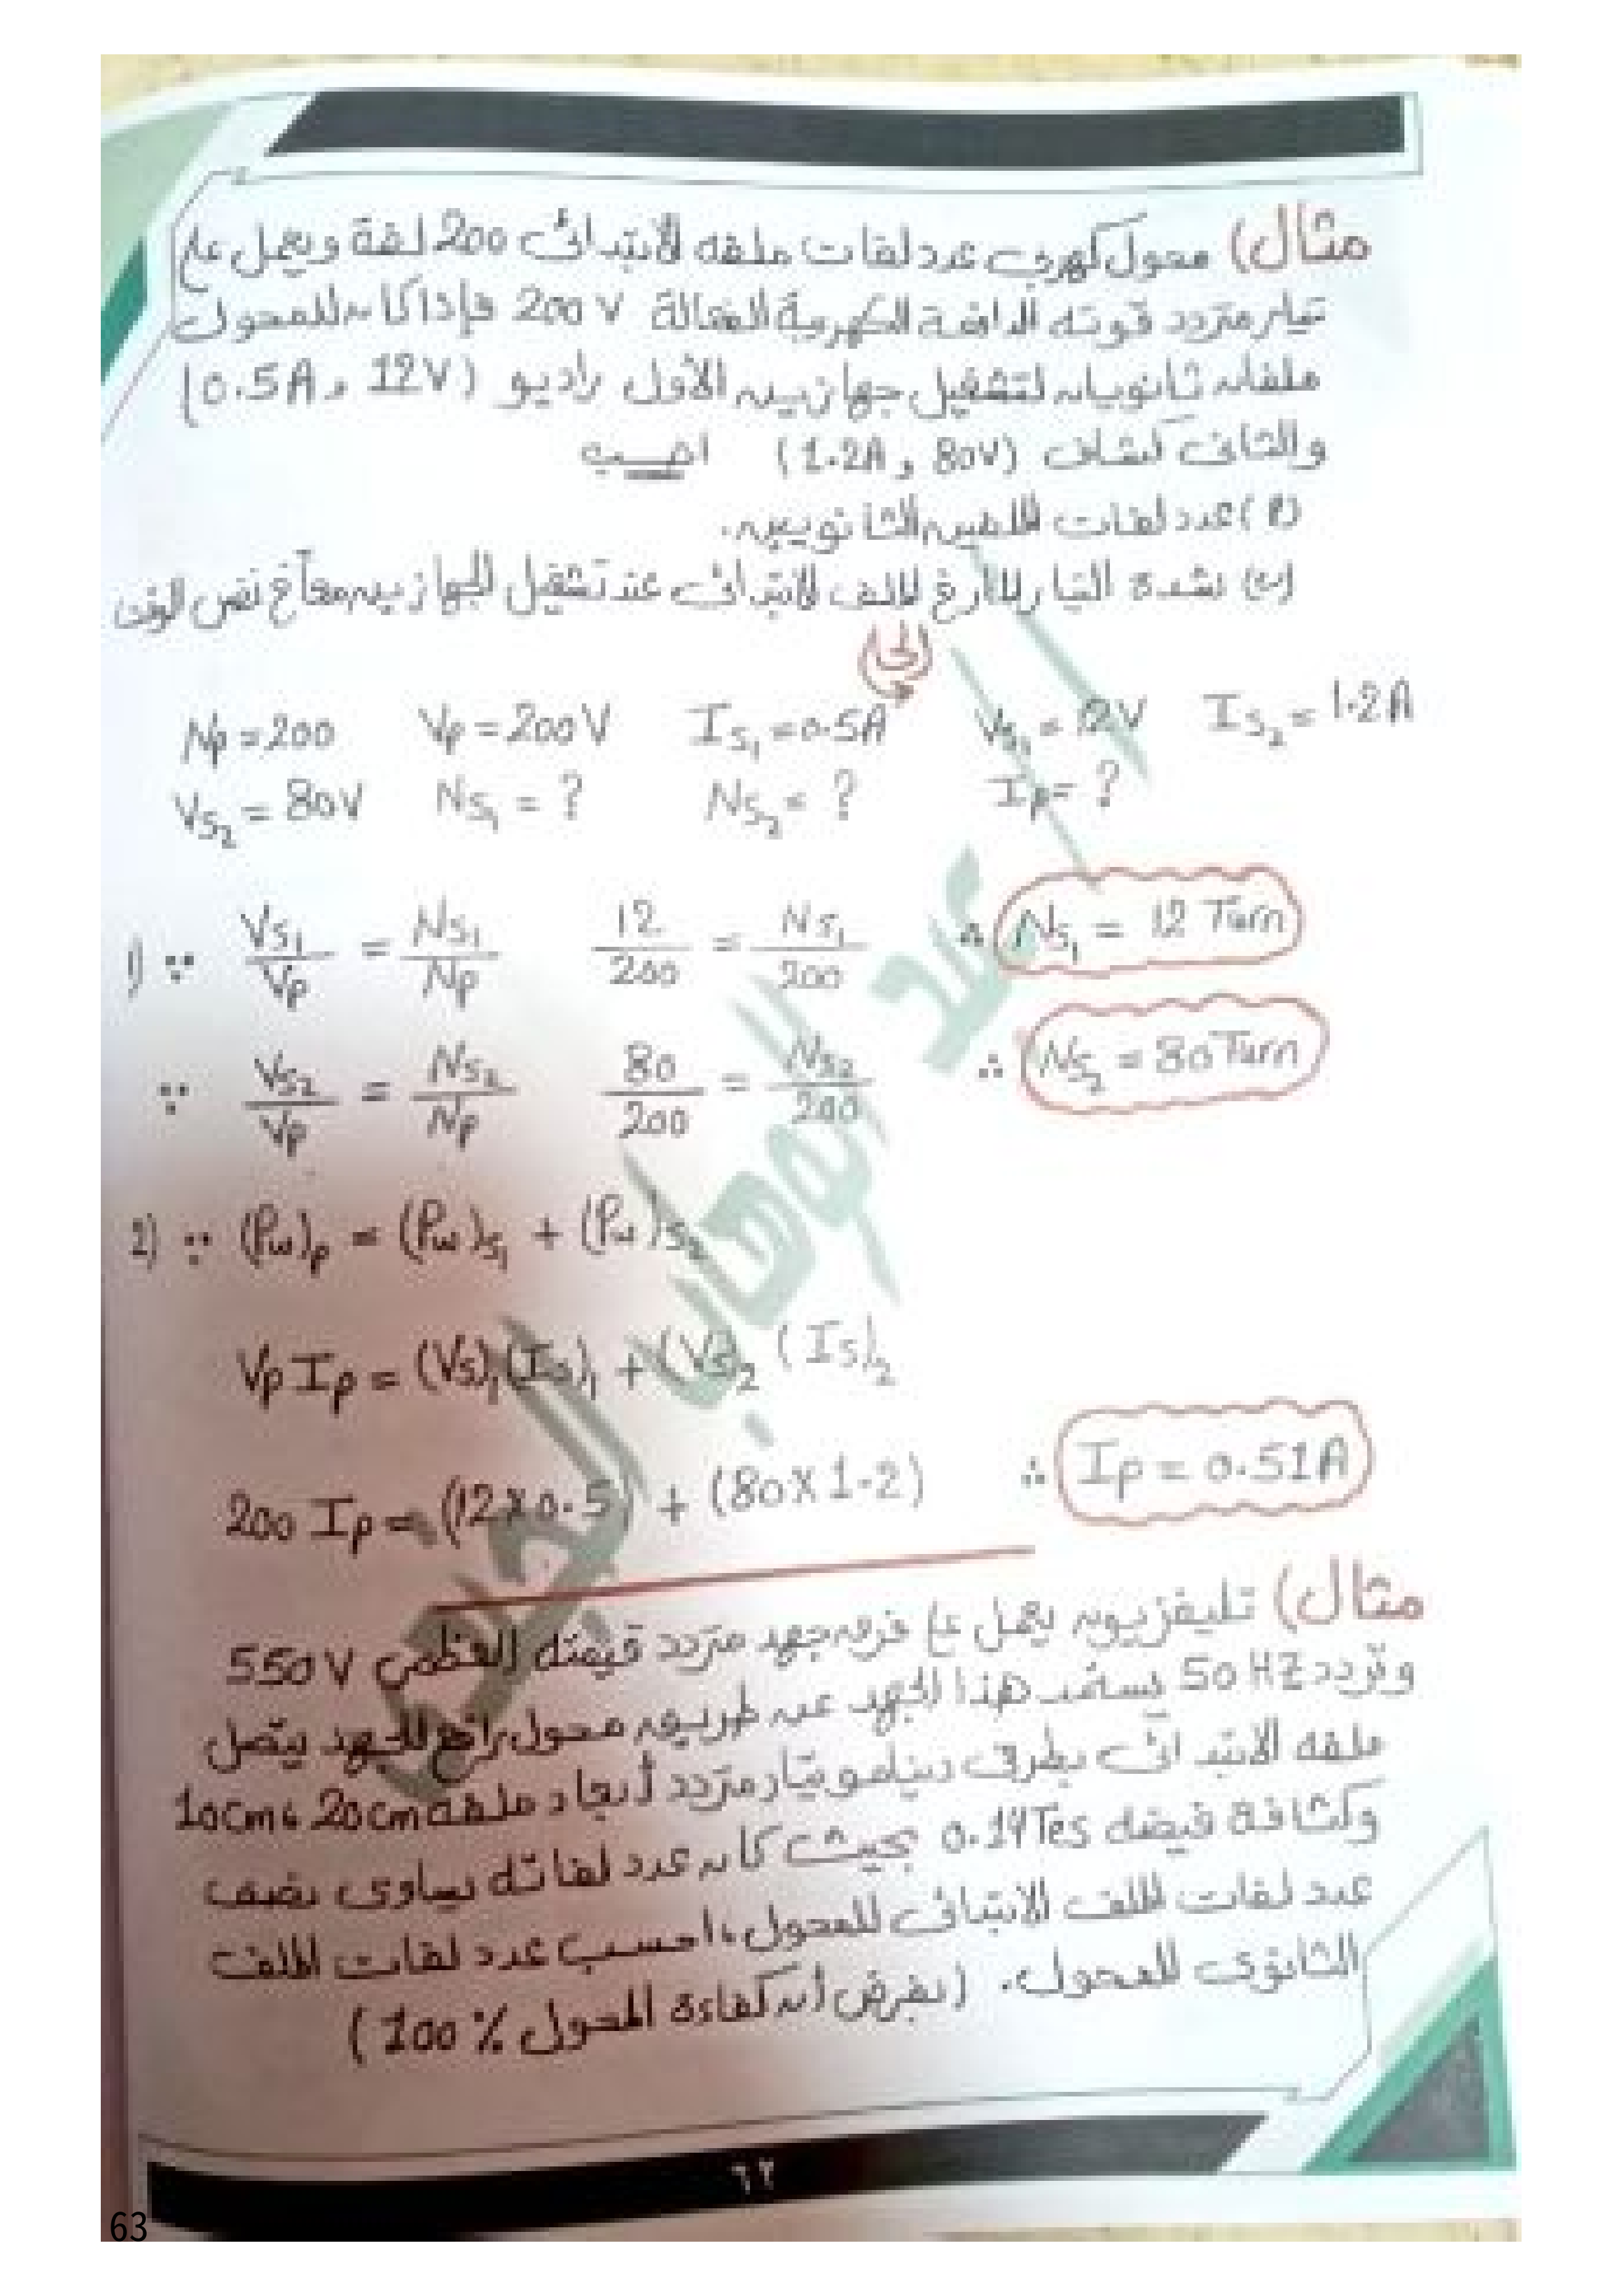 مثال) محول كهربي عدد لفات ملفه الابتدائى 200 لفة ويعمل على
تيار متردد قوته الدافعة الكهربية الفعالة 200 V فإذا كان للمحول
ملفان ثانويان لتشغيل جهازين الأول راديو (0.5A , 12V)
والثانى كشاف (1.2A , 80V) احسب
عدد لفات الملفين الثانويين.
شدة التيار المار فى الملف الابتدائى عند تشغيل الجهازين معاً فى نفس الوقت
(الحل)
Np = 200 Vp = 200 V I_S₁ = 0.5A V_S₁ = 12V I_S₂ = 1.2A
V_S₂ = 80V N_S₁ = ? N_S₂ = ? Ip = ?
1) ∵ V_S₁/Vp = N_S₁/Np 12/200 = N_S₁/200 ∴ N_S₁ = 12 Turn
∵ V_S₂/Vp = N_S₂/Np 80/200 = N_S₂/200 ∴ N_S₂ = 80 Turn
2) ∵ (Pw)p = (Pw)S₁ + (Pw)S₂
Vp Ip = (Vs)₁(Is)₁ + (Vs)₂ (Is)₂
200 Ip = (12 X 0.5) + (80 X 1.2) ∴ Ip = 0.51A
مثال) تليفزيون يعمل على فرق جهد متردد قيمته العظمى 550 V
وتردد 50 HZ يستمد هذا الجهد عن طريق محول رافع للجهد يتصل
ملفه الابتدائى بطرفى دينامو تيار متردد أبعاد ملفه 10cm ، 20cm
وكثافة فيضه 0.14Tes بحيث كان عدد لفاته يساوى نصف
عدد لفات الملف الابتدائى للمحول ، احسب عدد لفات الملف
الثانوى للمحول. (بفرض أن كفاءة المحول % 100)
٦٢
63